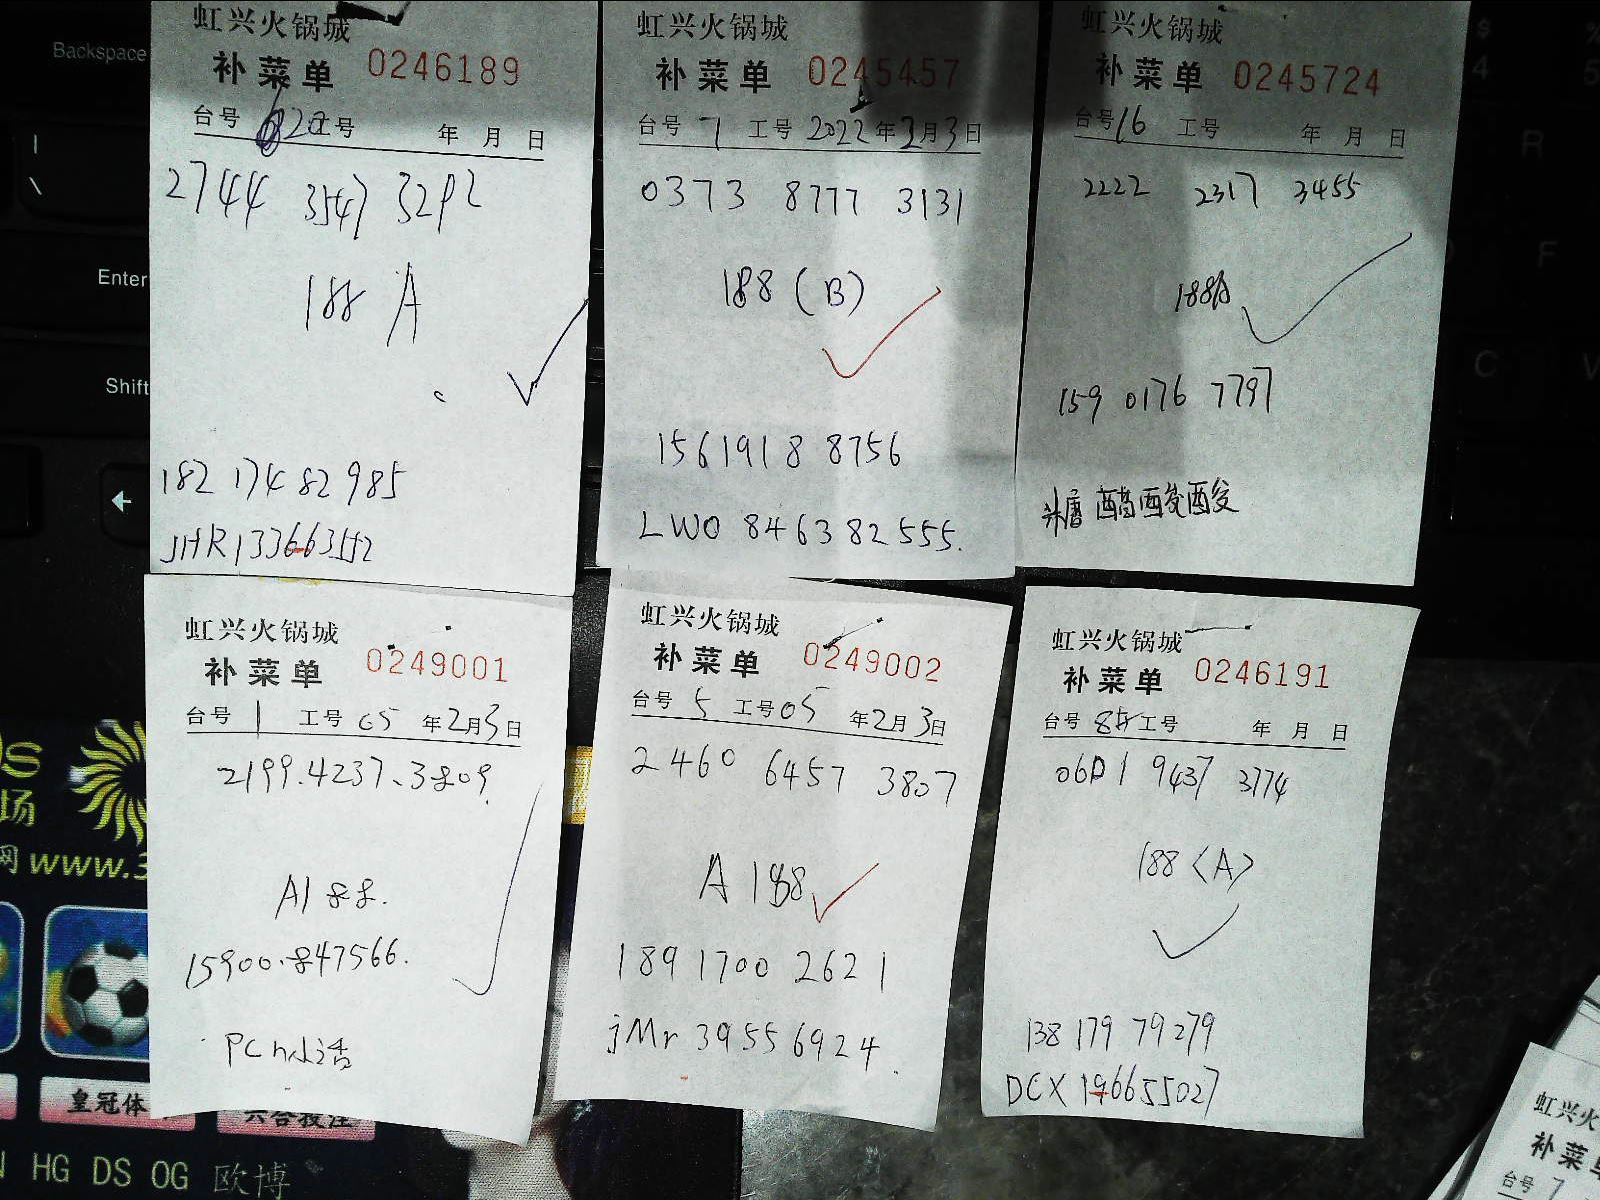 虹兴火锅城
补菜单 0246189
台号 020 工号 年 月 日
2744 3547 3292
188 A
182 174 82 985
JHR133663552
虹兴火锅城
补菜单 0245457
台号 7 工号 2022年2月3日
0373 8777 3131
188 (B)
1561918 8756
LWO 846382555.
虹兴火锅城
补菜单 0245724
台号 16 工号 年 月 日
2222 2317 3455
188A
159 0176 7797
糖醋
虹兴火锅城
补菜单 0249001
台号 1 工号 05 年2月3日
2199.4237.3809.
A188.
15900.847566.
虹兴火锅城
补菜单 0249002
台号 5 工号05 年2月3日
2460 6457 3807
A 188
189 1700 2621
jMr 39556924.
虹兴火锅城
补菜单 0246191
台号 工号 年 月 日
9437 3774
188 <A>
138 179 79279
DCX 196655027
虹兴火
补菜单
台号 7
Backspace
|
\
Enter
Shift
←
$
4
%
5
R
F
C
OS
场
网 www.3
皇冠体
六合投注
HG DS OG 欧博